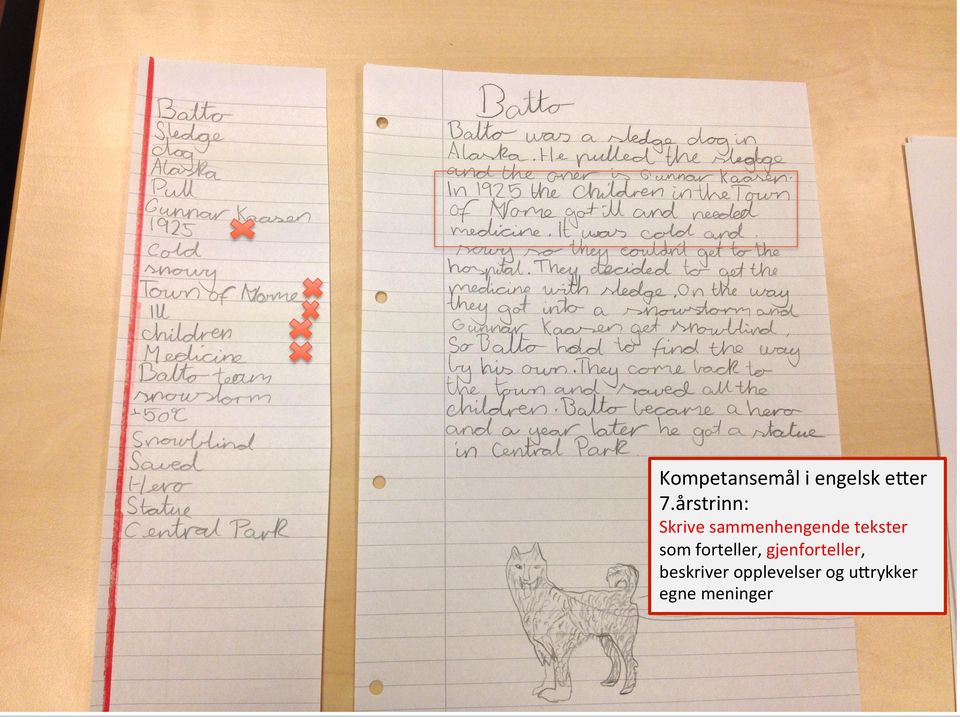 Balto
Sledge
dog
Alaska
Pull
Gunnar Kaasen
1925
Cold
snowy
Town of Nome
Ill
children
Medicine
Balto team
snowstorm
-50°C
Snowblind
Saved
Hero
Statue
Central Park
Balto
Balto was a sledge dog in
Alaska. He pulled the sledge
and the oner is Gunnar Kaasen.
In 1925 the children in the Town
of Nome got ill and needed
medicine. It was cold and
sowy so they couldn't get to the
hospital. They decided to get the
medicine with sledge. On the way
they got into a snowstorm and
Gunnar Kaasen get snowblind.
So Balto had to find the way
by his own. They come back to
the town and saved all the
children. Balto became a hero
and a year later he got a statue
in Central Park.
Kompetansemål i engelsk etter
7.årstrinn:
Skrive sammenhengende tekster
som forteller, gjenforteller,
beskriver opplevelser og uttrykker
egne meninger